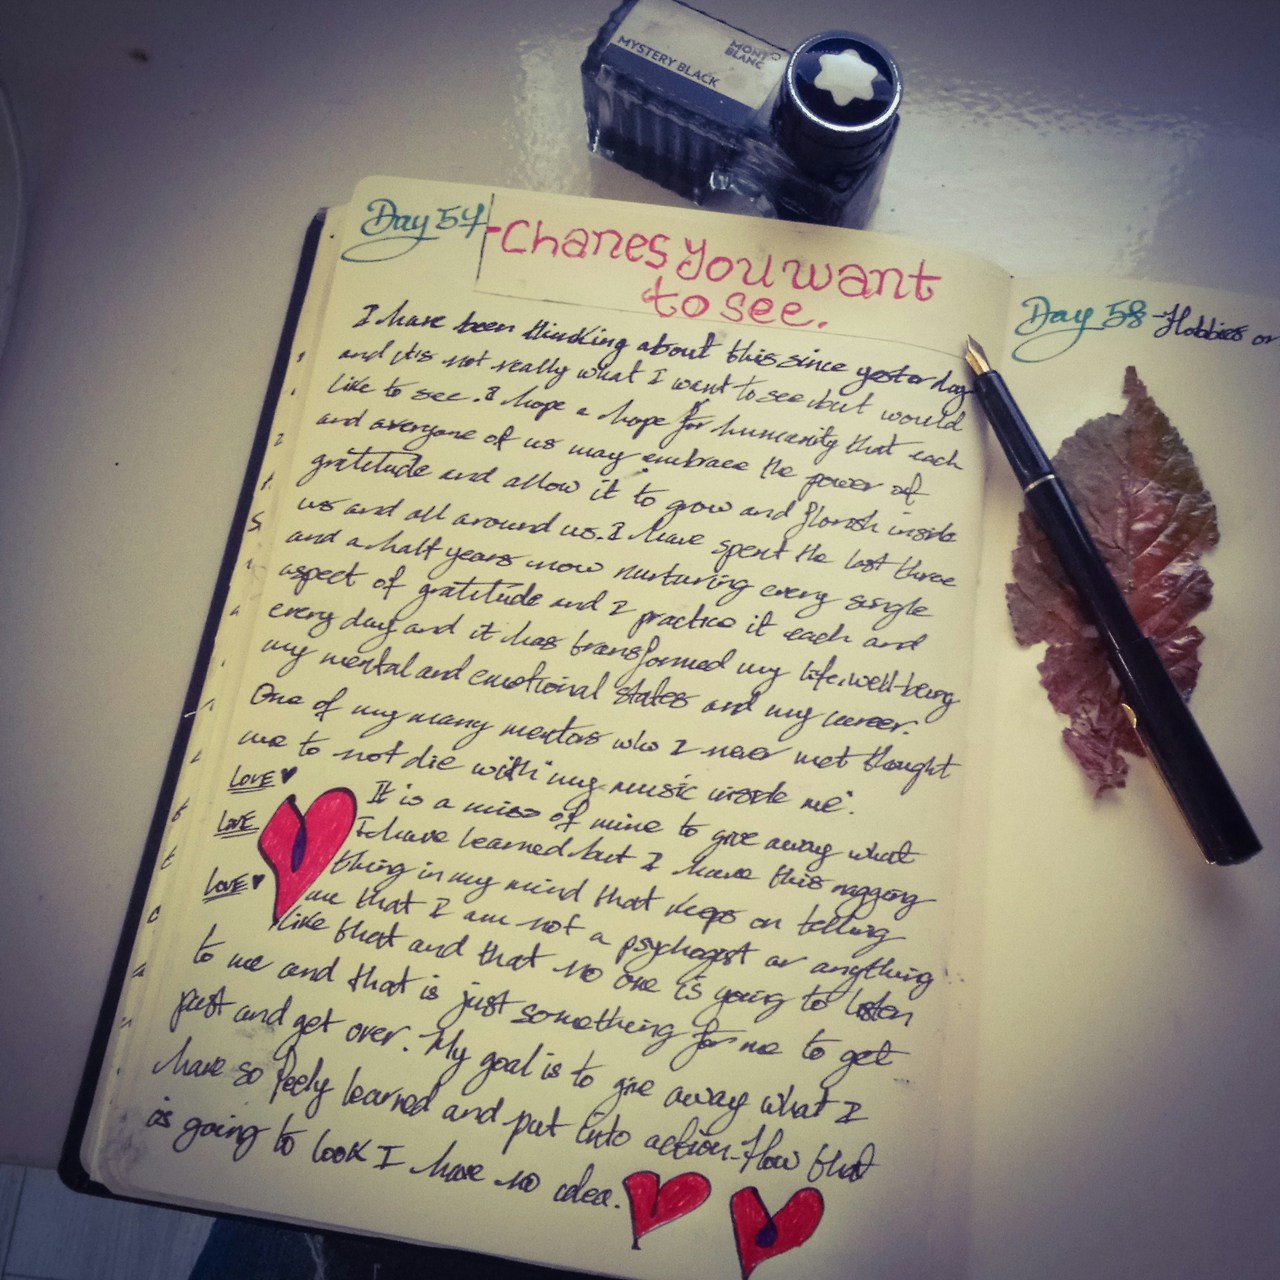 MONT
BLANC
MYSTERY BLACK
Day 57
-Chanes you want
to see.
I have been thinking about this since yesterday
and it's not really what I want to see but would
like to see. I hope a hope for humanity that each
and averyone of us may embrace the power of
gratitude and allow it to grow and florish inside
us and all around us. I have spent the last three
and a half years now nurturing every single
aspect of gratitude and I practice it each and
every day and it has transformed my life, well-being
my mental and emotional states and my career.
One of my many mentors who I never met thought
me to not die with "my music inside me".
It is a miss of mine to give away what
I have learned but I have this nagging
thing in my mind that keeps on telling
me that I am not a psychogist or anything
like that and that no one is going to listen
to me and that is just something for me to get
past and get over. My goal is to give away what I
have so feely learned and put into action. How that
is going to look I have no idea.
LOVE ♥
LOVE
LOVE ♥
Day 58 - Hobbies or